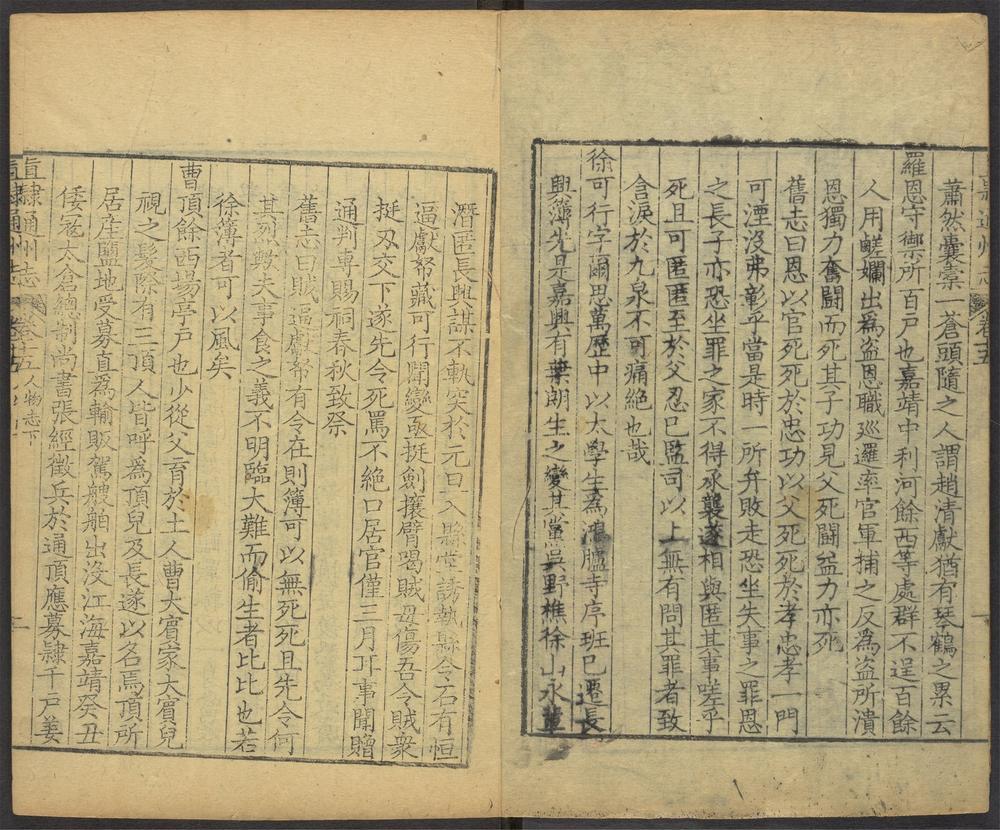 直隸通州志 卷十五
蕭然囊橐一蒼頭隨之人謂趙清獻猶有琴鶴之累云
羅恩守禦所百戶也嘉靖中利河餘西等處群不逞百餘
人用鹺爛出為盜恩職廵邏率官軍捕之反為盜所潰
恩獨力奮鬪而死其子功見父死鬪益力亦死
舊志曰恩以官死死於忠功以父死死於孝忠孝一門
可湮沒弗彰乎當是時一所弁敗走恐坐失事之罪恩
之長子亦恐坐罪之家不得承襲遂相與匿其事嗟乎
死且可匿匿至於父忍已監司以上無有問其罪者致
含淚於九泉不可痛絕也哉
徐可行字爾思萬歷中以太學生為鴻臚寺序班已遷長
興簿先是嘉興有葉朗生之變其黨吳野樵徐山永葦
潛匿長興謀不軌突於元旦入縣世誘執縣令石有恒
逼獻帑藏可行聞變亟挺劍攘臂喝賊毋傷吾令賊衆
挺刃交下遂先令死罵不絕口居官僅三月耳事聞贈
通判專賜祠春秋致祭
舊志曰賊逼獻帑有令在則簿可以無死死且先令何
其烈歟夫事食之義不明臨大難而偷生者比比也若
徐簿者可以風矣
曹頂餘西場亭戶也少從父育於土人曹大賓家大賓兒
視之髮際有三頂人皆呼為頂兒及長遂以名焉頂所
居產鹽地受募直為輸販駕艘舶出沒江海嘉靖癸丑
倭寇太倉總制尚書張經徵兵於通頂應募隸千戶姜
直隸通州志 卷十五人物志下